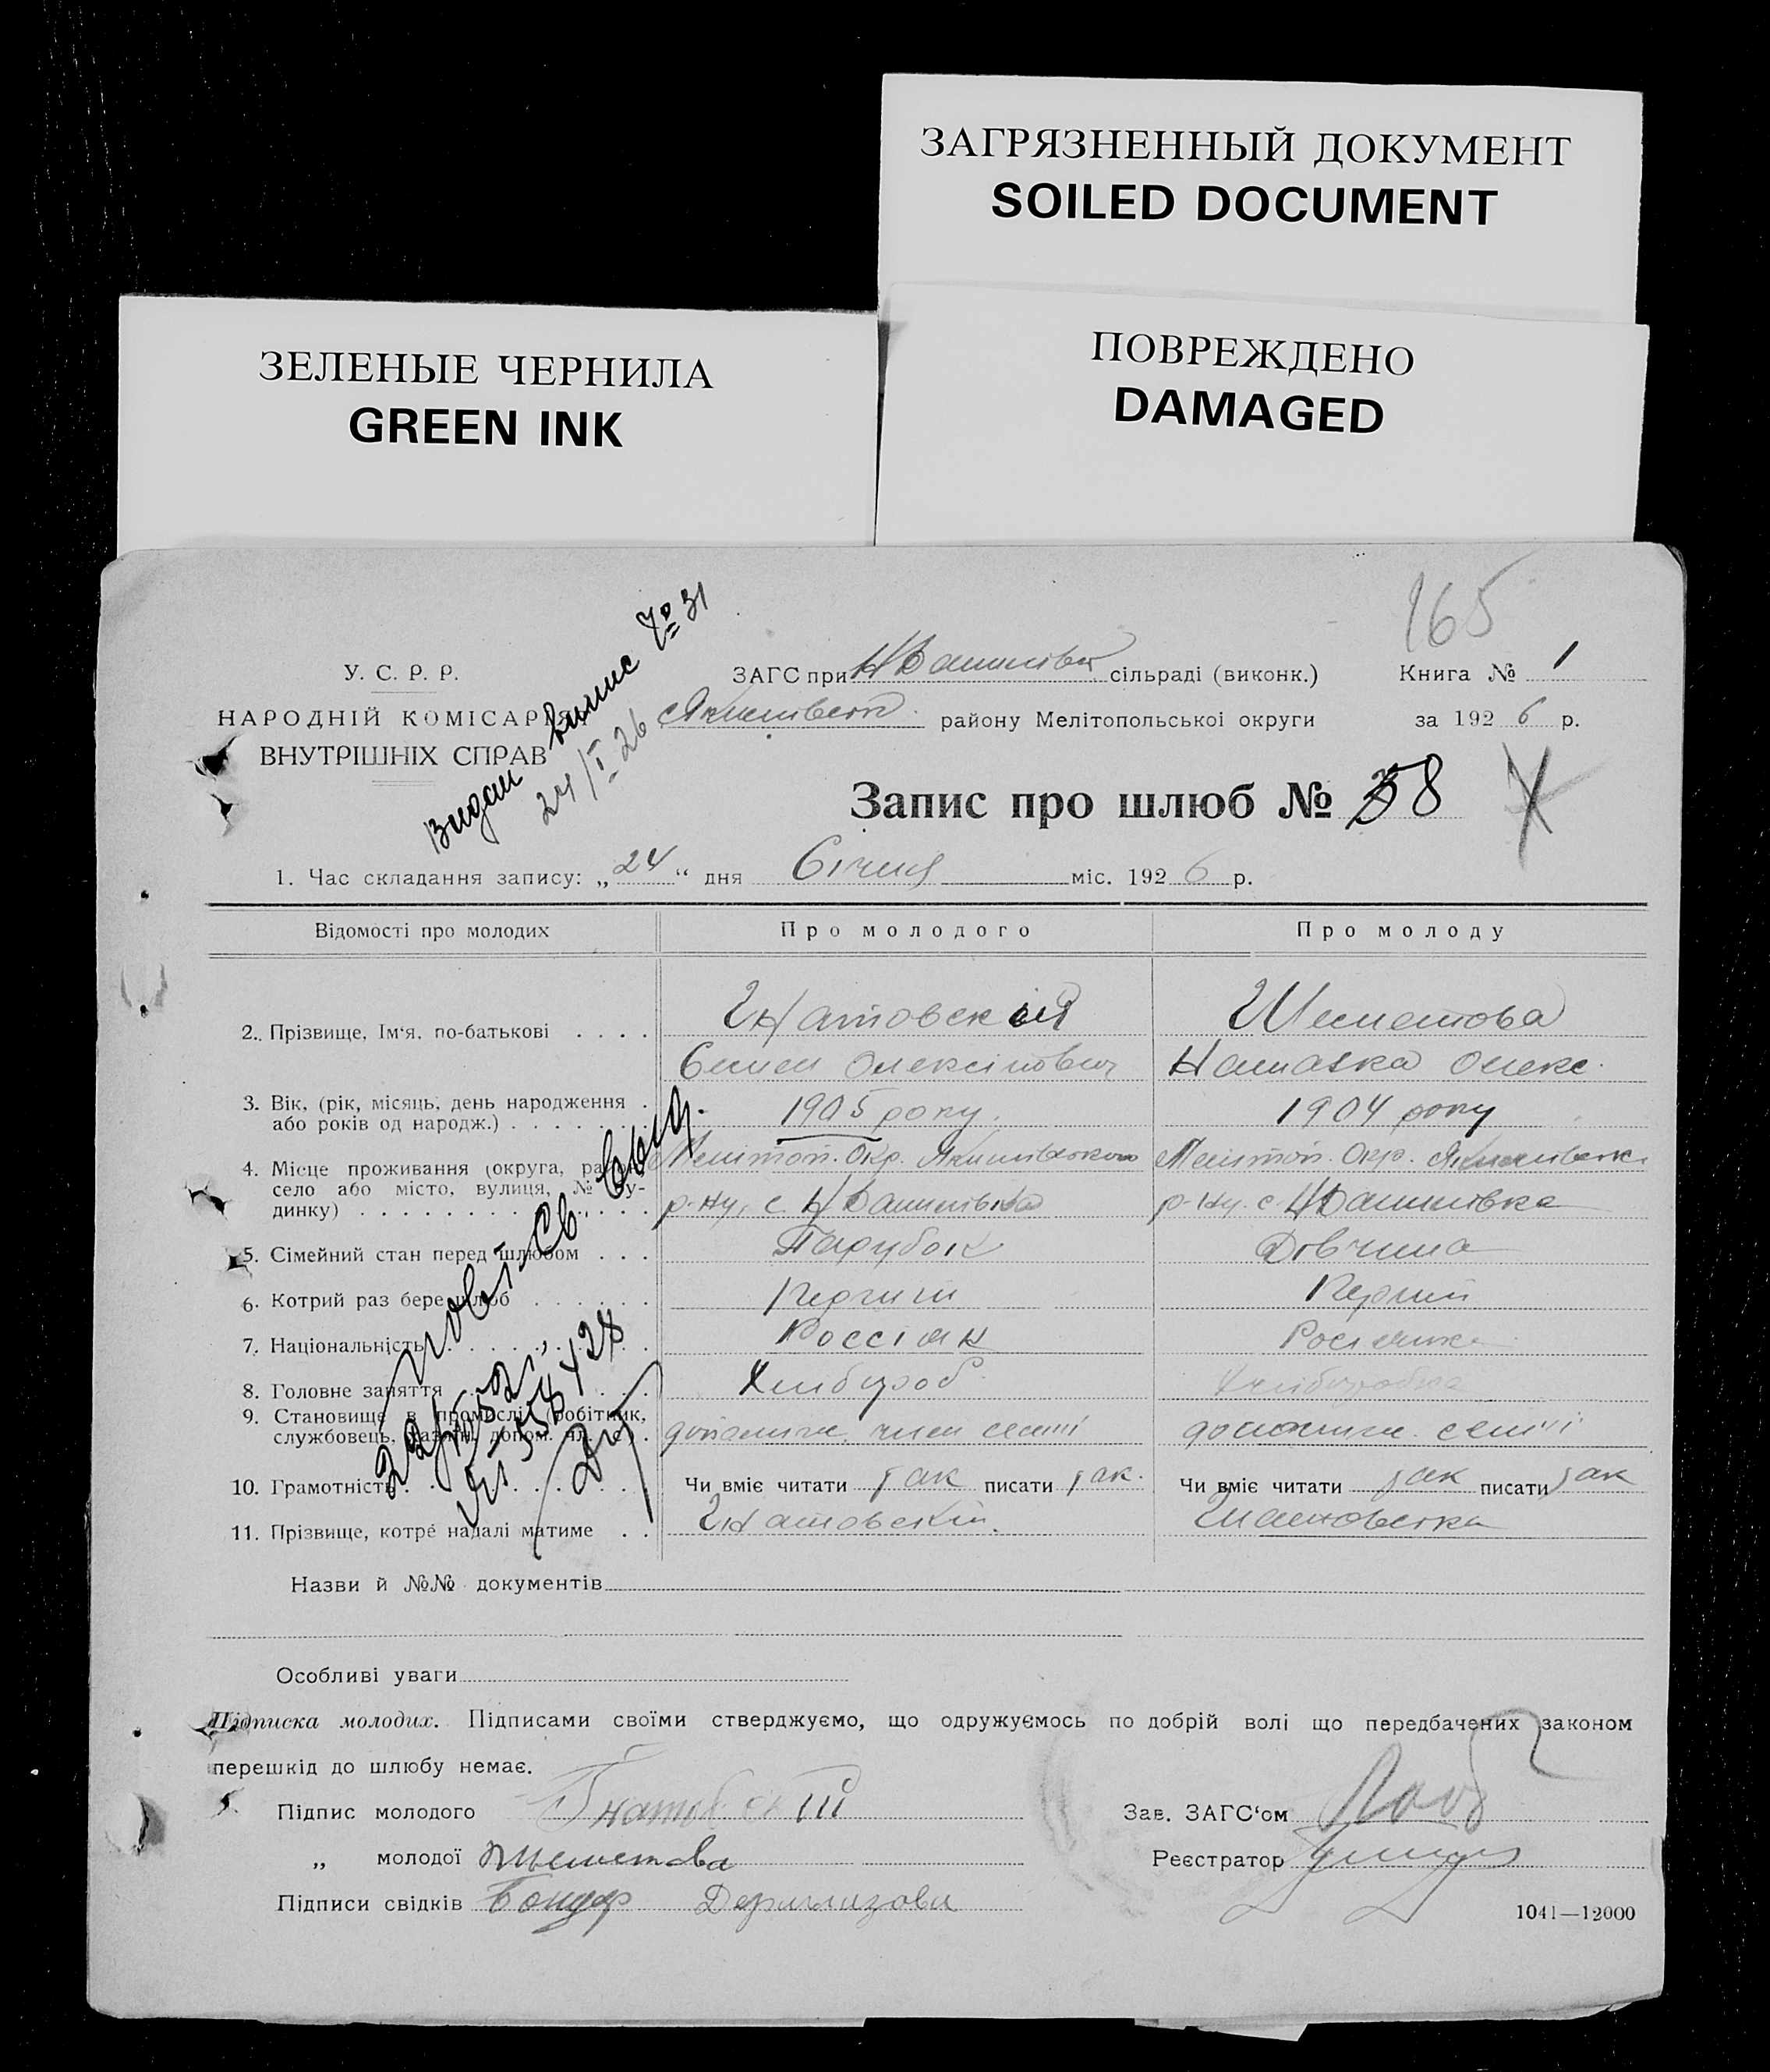 ЗАГРЯЗНЕННЫЙ ДОКУМЕНТ
SOILED DOCUMENT
ЗЕЛЕНЫЕ ЧЕРНИЛА
GREEN INK
ПОВРЕЖДЕНО
DAMAGED
165
Видан випис № 31
24/I-26
У. С. Р. Р.
НАРОДНІЙ КОМІСАРІЯТ
ВНУТРІШНІХ СПРАВ
ЗАГС при сільраді (виконк.)
району Мелітопольської округи
Книга № 1
за 1926 р.
Запис про шлюб № 58
1. Час складання запису: „24“ дня Січня міс. 1926 р.
Відомості про молодих Про молодого Про молоду
2. Прізвище, Ім'я, по-батькові . . . . Гнатовский Шеметова
Семен Олексійович Наталка Олекс.
3. Вік, (рік, місяць, день народження . 1905 року. 1904 року
або років од народж.) . . . . . .
4. Місце проживання (округа, район, Мелітоп. Окр. Якимівського Мелітоп. Окр. Якимівськ.
село або місто, вулиця, № бу- р-ну, с. р-ну. с.
динку) . . . . . . . .
5. Сімейний стан перед шлюбом . . . Парубок Дівчина
6. Котрий раз бере шлюб . . . . . . Перший Перший
7. Національність . . . . . . Россіян Росіянка
8. Головне заняття . . . . . Хлібороб Хліборобка
9. Становище в промислі (робітник, допоміжн. член семії допоміжн. семії
службовець, хазяїн, допом. чл. с.) .
10. Грамотність . . . . . . Чи вміє читати так писати так. Чи вміє читати так писати так
11. Прізвище, котре надалі матиме . . Гнатовский. Гнатовська
Назви й №№ документів
Особливі уваги
Підписка молодих. Підписами своїми стверджуємо, що одружуємось по добрій волі що передбачених законом
перешкід до шлюбу немає.
Підпис молодого Гнатовскій
„ молодої Шеметова
Підписи свідків Бондар
Зав. ЗАГС'ом
Реєстратор
1041—12000